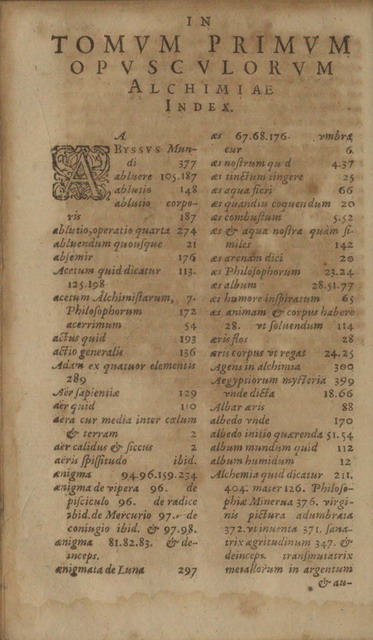 IN
TOMVM PRIMVM
OPVSCVLORVM
ALCHIMIAE
INDEX.
A
ABYSSVS Mun-
di 377
abluere 105.187
ablutio 148
ablutio corpo-
ris 187
ablutio, operatio quarta 274
abluendum quousque 21
absemir 176
Acetum quid dicatur 113.
125.198
acetum Alchimistarum, 7.
Philosophorum 172
acerrimum 54
actus quid 193
actio generalis 136
Adam ex quatuor elementis
289
Aër sapientiæ 129
aër quid 110
aëra cur media inter cœlum
& terram 2
aër calidus & siccus 2
aëris spissitudo ibid.
ænigma 94.96.159.234
ænigma de vipera 96. de
pisciculo 96. de radice
ibid. de Mercurio 97. de
coniugio ibid. & 97.98.
ænigma 81.82.83. & de-
inceps.
ænigmata de Luna 297
æs 67.68.176. vmbræ
cur 6.
æs nostrum quid 4.37
æs tinctum tingere 25
æs aqua fieri 66
æs quandiu coquendum 20
æs combustum 5.52
æs & aqua nostra quàm si-
miles 142
æs arenam dici 20
æs Philosophorum 23.24
æs album 28.51.77
æs humore inspiratum 65
æs animam & corpus habere
28. vt soluendum 114
æris flos 28
æris corpus vt regat 24.25
Agens in alchimia 300
Aegyptiorum mysteria 399
vnde dicta 18.66
Albar æris 88
albedo vnde 170
albedo initio quærenda 51.54
album mundum quid 112
album humidum 12
Alchimia quid dicatur 211.
404. mater 126. Philoso-
phiæ Minerua 376. virgi-
nis pictura adumbrata
372. vt inuenta 371. sana-
trix ægritudinum 347. &
deinceps. transmutatrix
metallorum in argentum
& au-